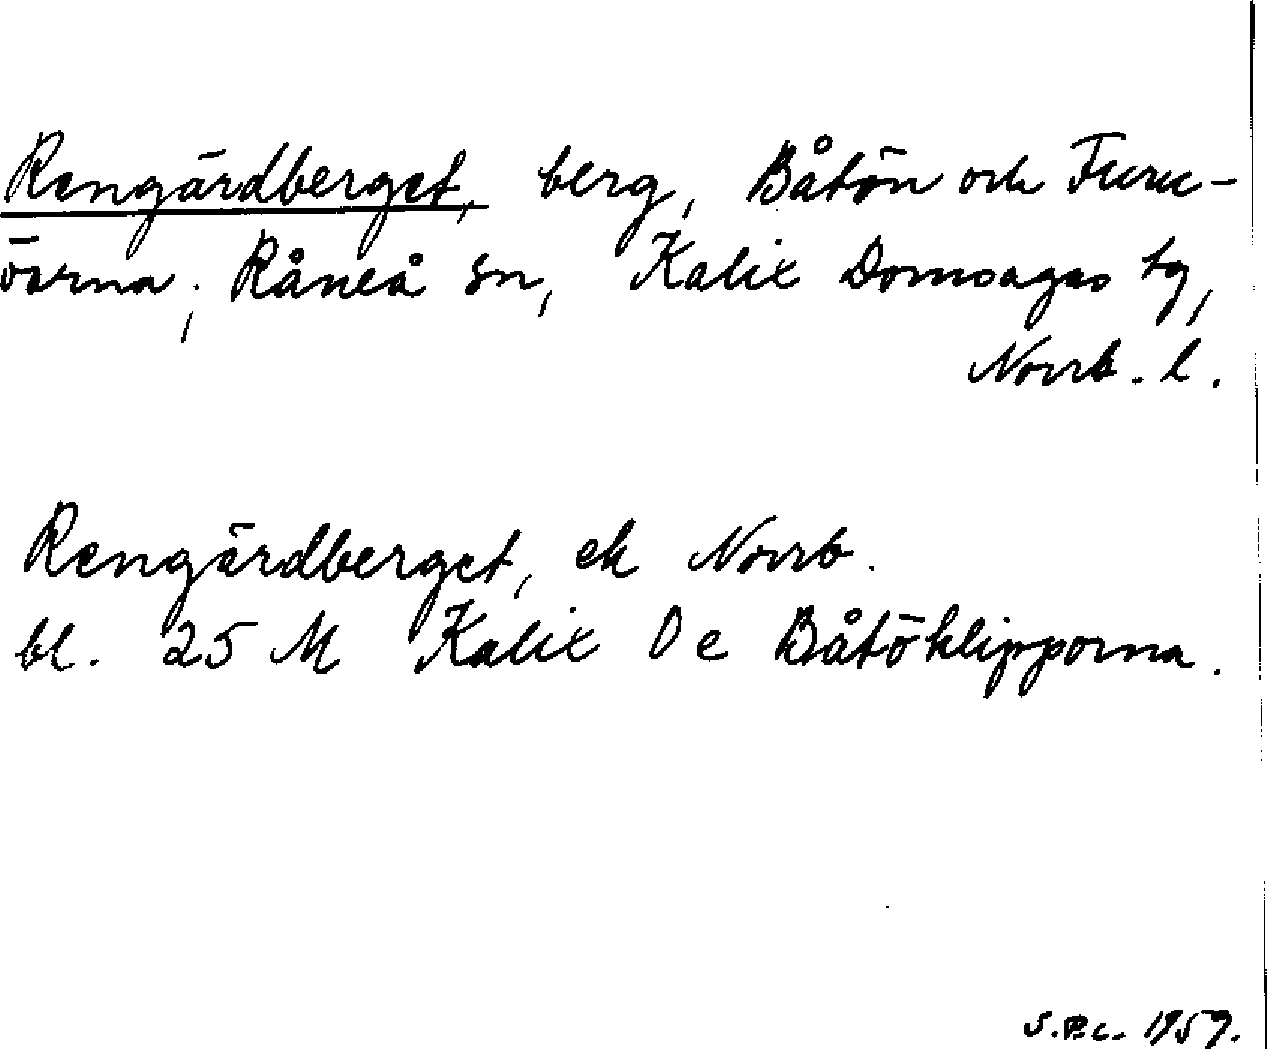 Rengärdberget, berg, Båtön och Furu-
öarna, Råneå sn, Kalix Domsagas tg,
Norrb. l.
Rengärdberget, ek Norrb.
bl. 25 M Kalix De Båtöklipporna.
S.B.C. 1959.